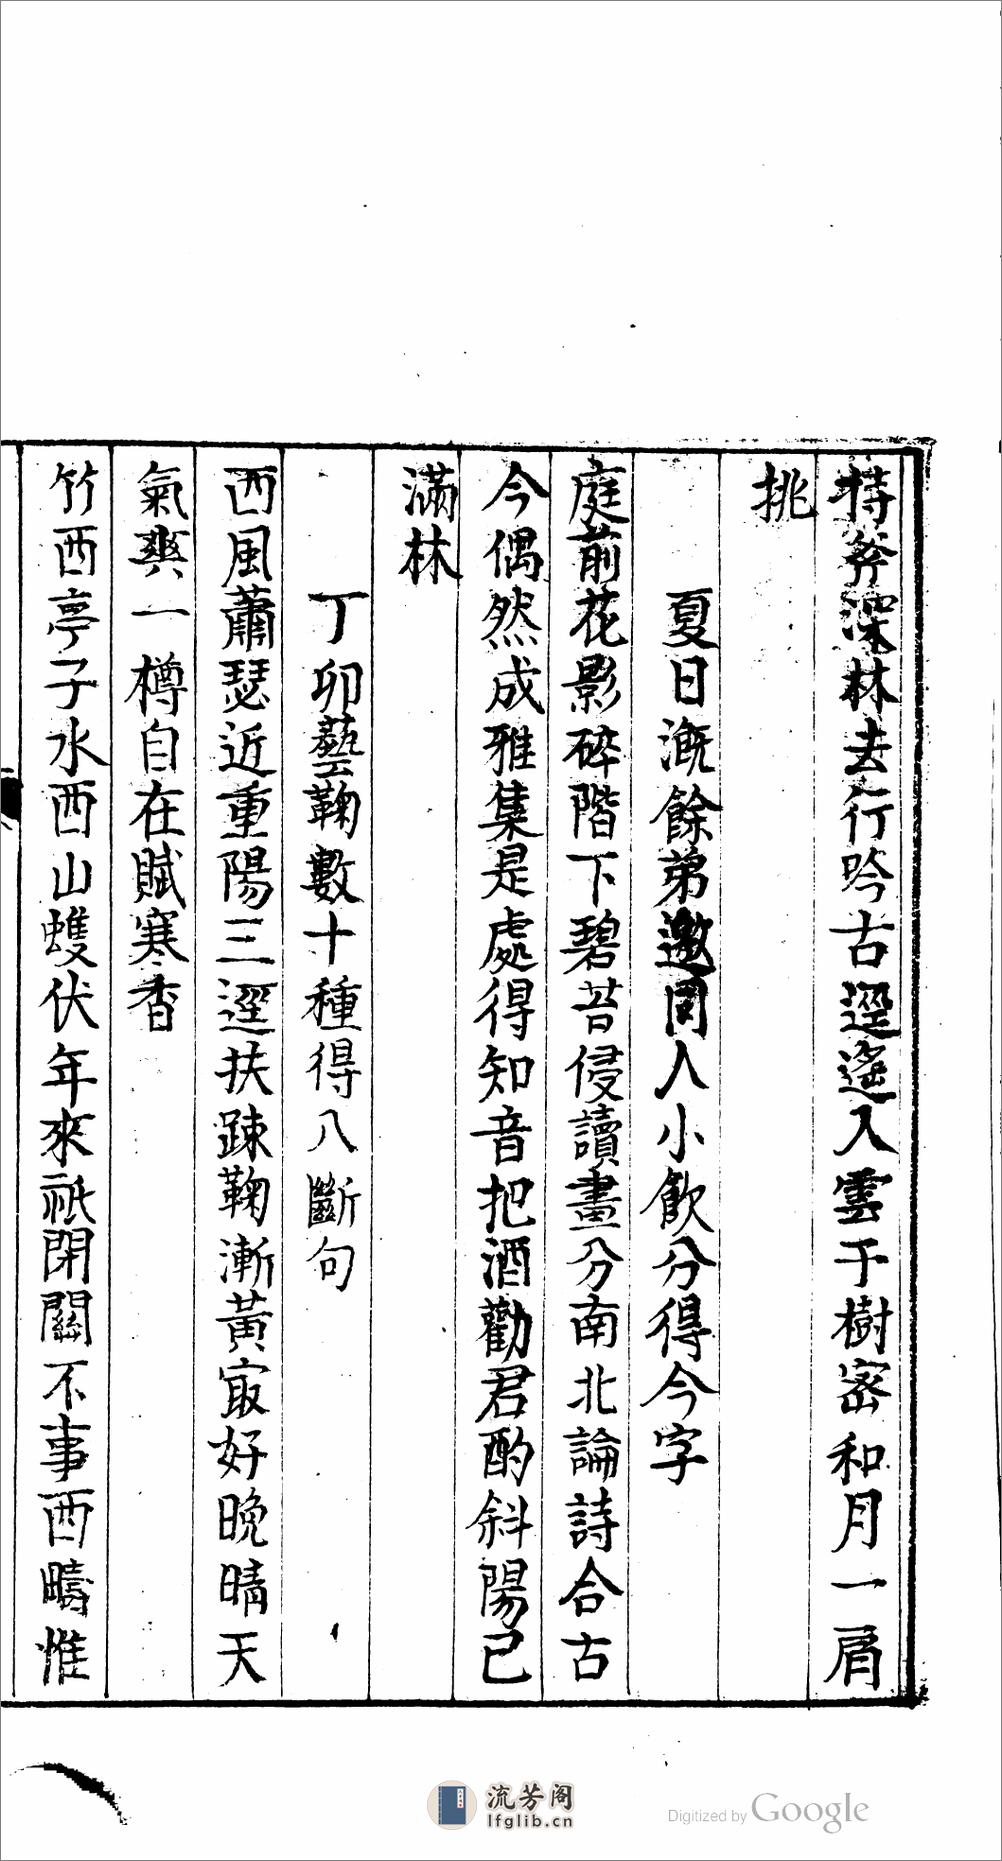 持斧深林去行吟古逕遙入雲千樹密和月一肩
挑
夏日漑餘弟邀同人小飲分得今字
庭前花影碎階下碧苔侵讀畫分南北論詩合古
今偶然成雅集是處得知音把酒勸君酌斜陽已
滿林
丁卯藝鞠數十種得八斷句
西風蕭瑟近重陽三逕扶踈鞠漸黃㝡好晚晴天
氣爽一樽自在賦寒香
竹西亭子水西山蠖伏年來祇閉關不事西疇惟
流芳阁
lfglib.cn
Digitized by Google